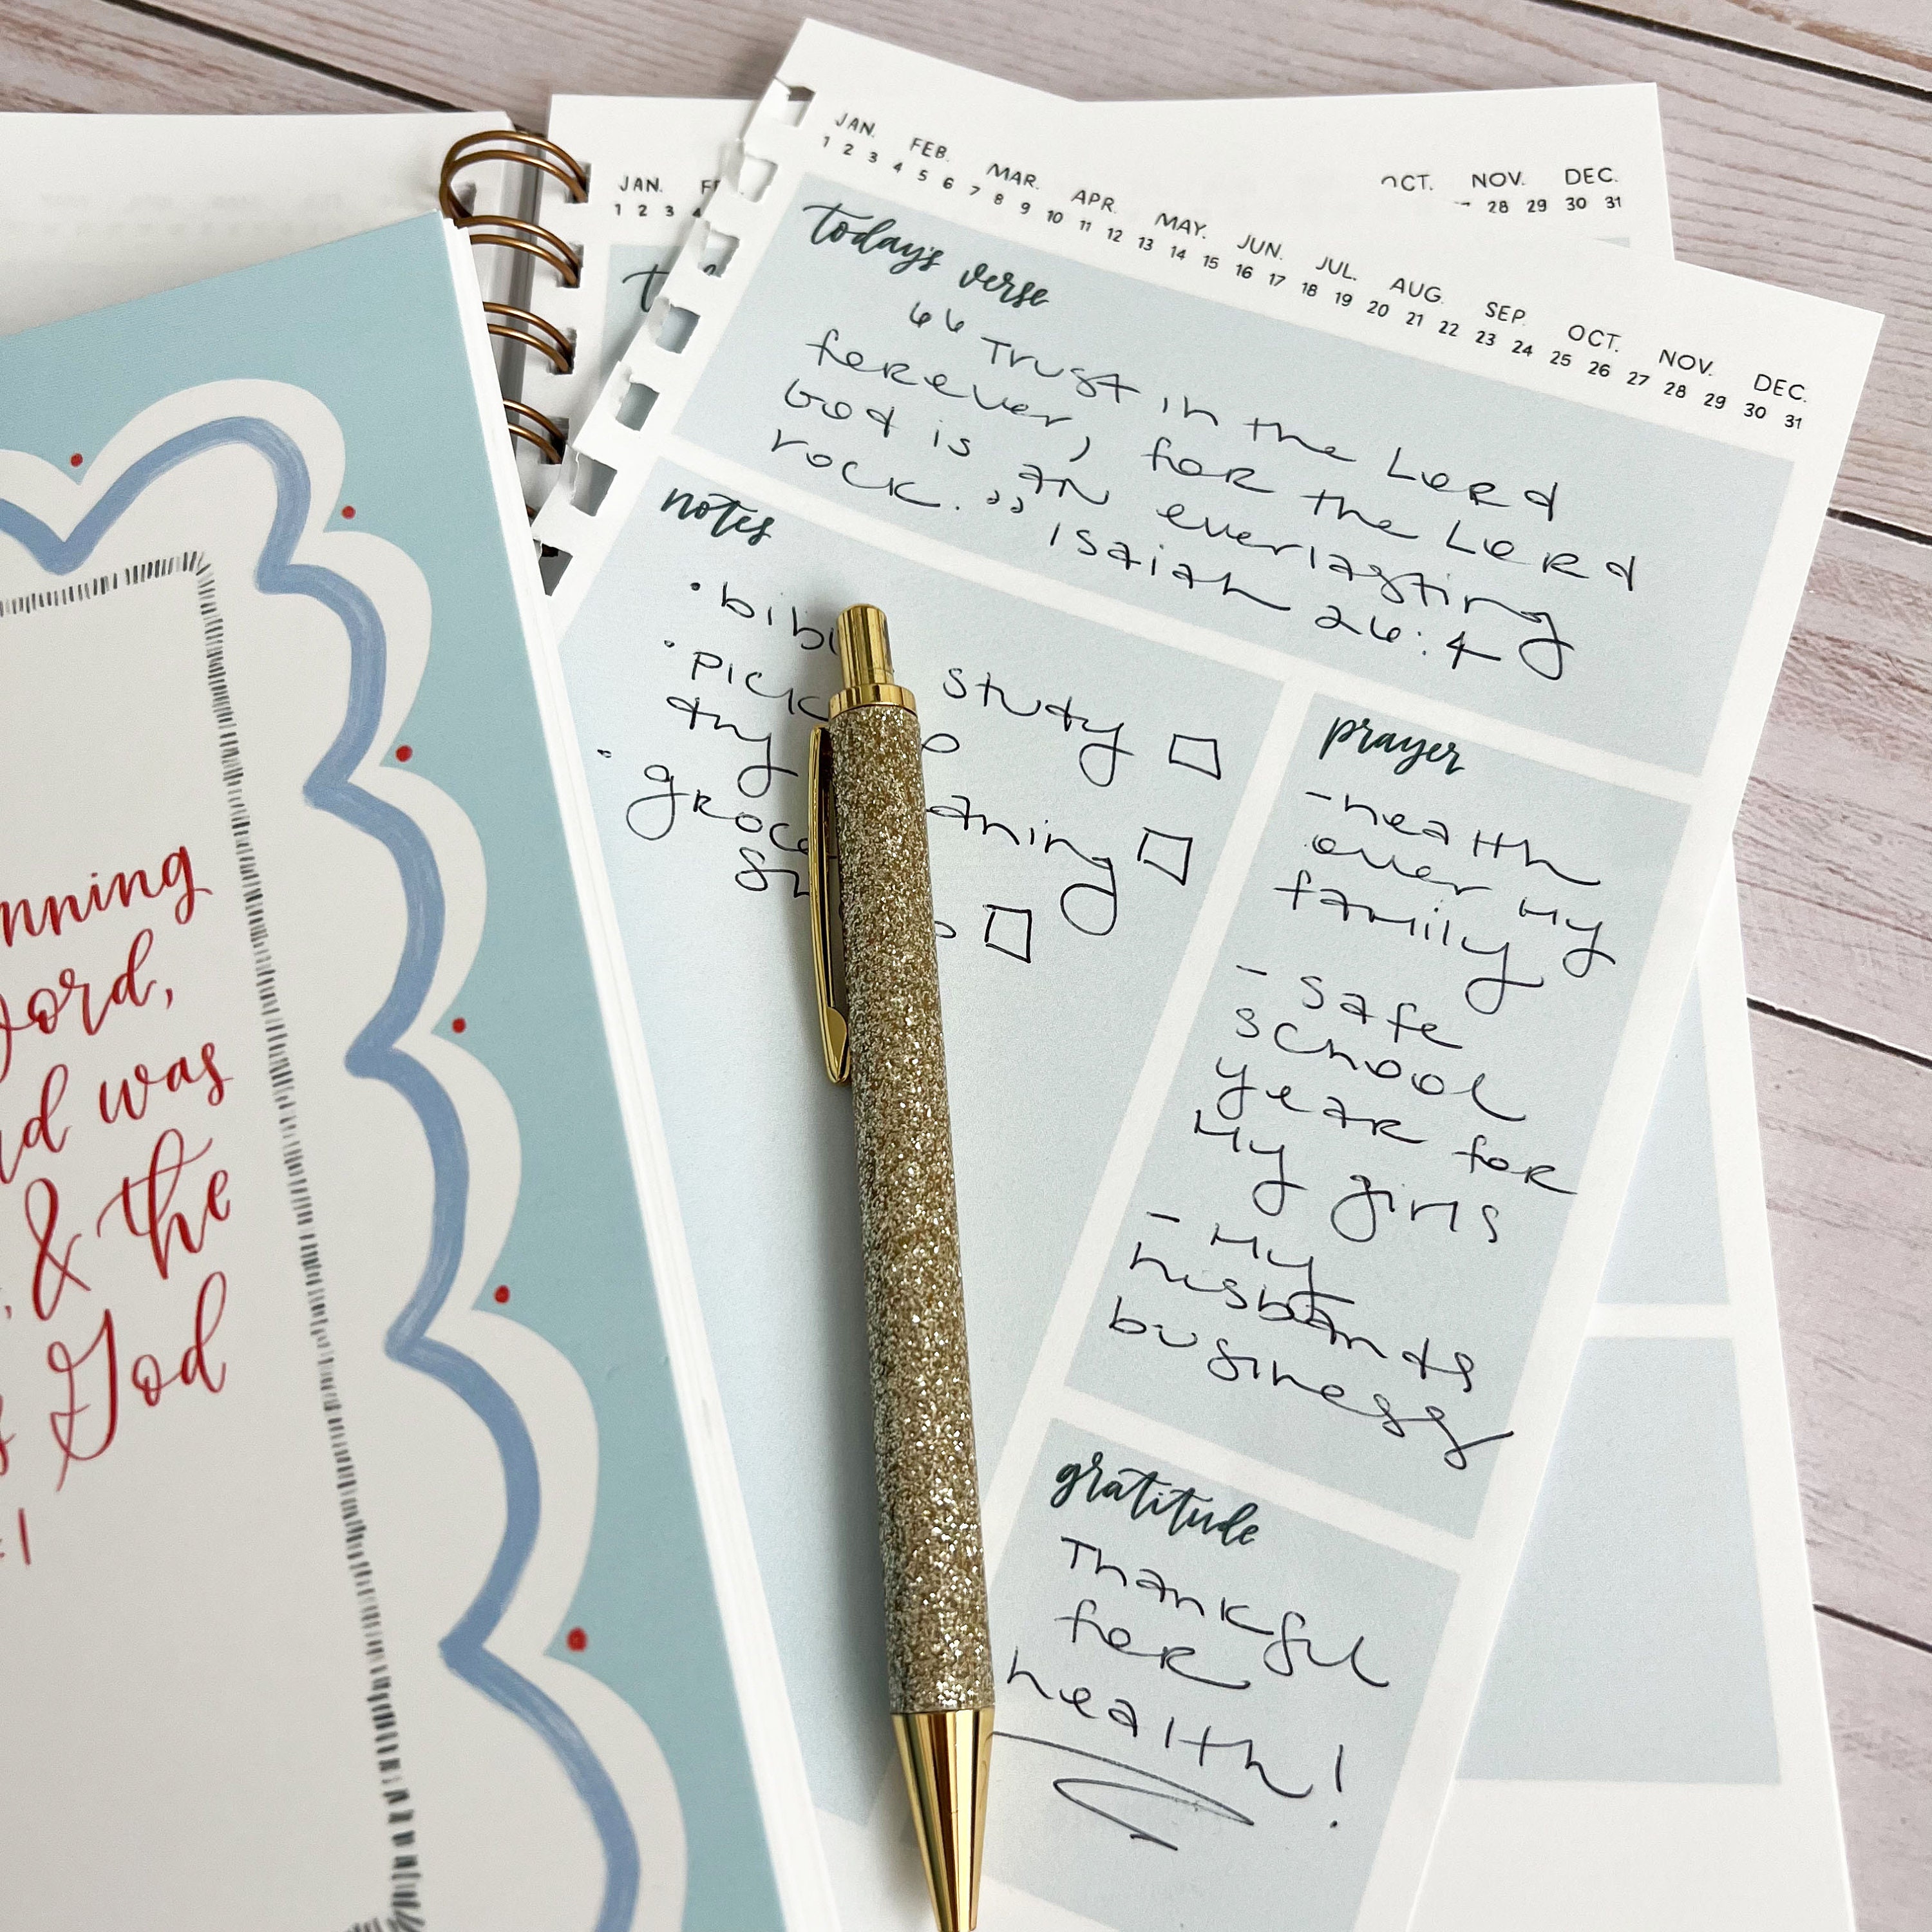 JAN. FEB. MAR. APR. MAY. JUN. JUL. AUG. SEP. OCT. NOV. DEC.
1 2 3 4 5 6 7 8 9 10 11 12 13 14 15 16 17 18 19 20 21 22 23 24 25 26 27 28 29 30 31
today's verse
"Trust in the Lord
forever, for the Lord
God is an everlasting
rock." Isaiah 26:4
notes
• study
• pick
dry
•
prayer
- health
over my
family
- safe
school
year for
my girls
- my
husbands
business
gratitude
Thankful
for
health!
JAN.
1 2 3
NOV. DEC.
28 29 30 31
was
& the
God